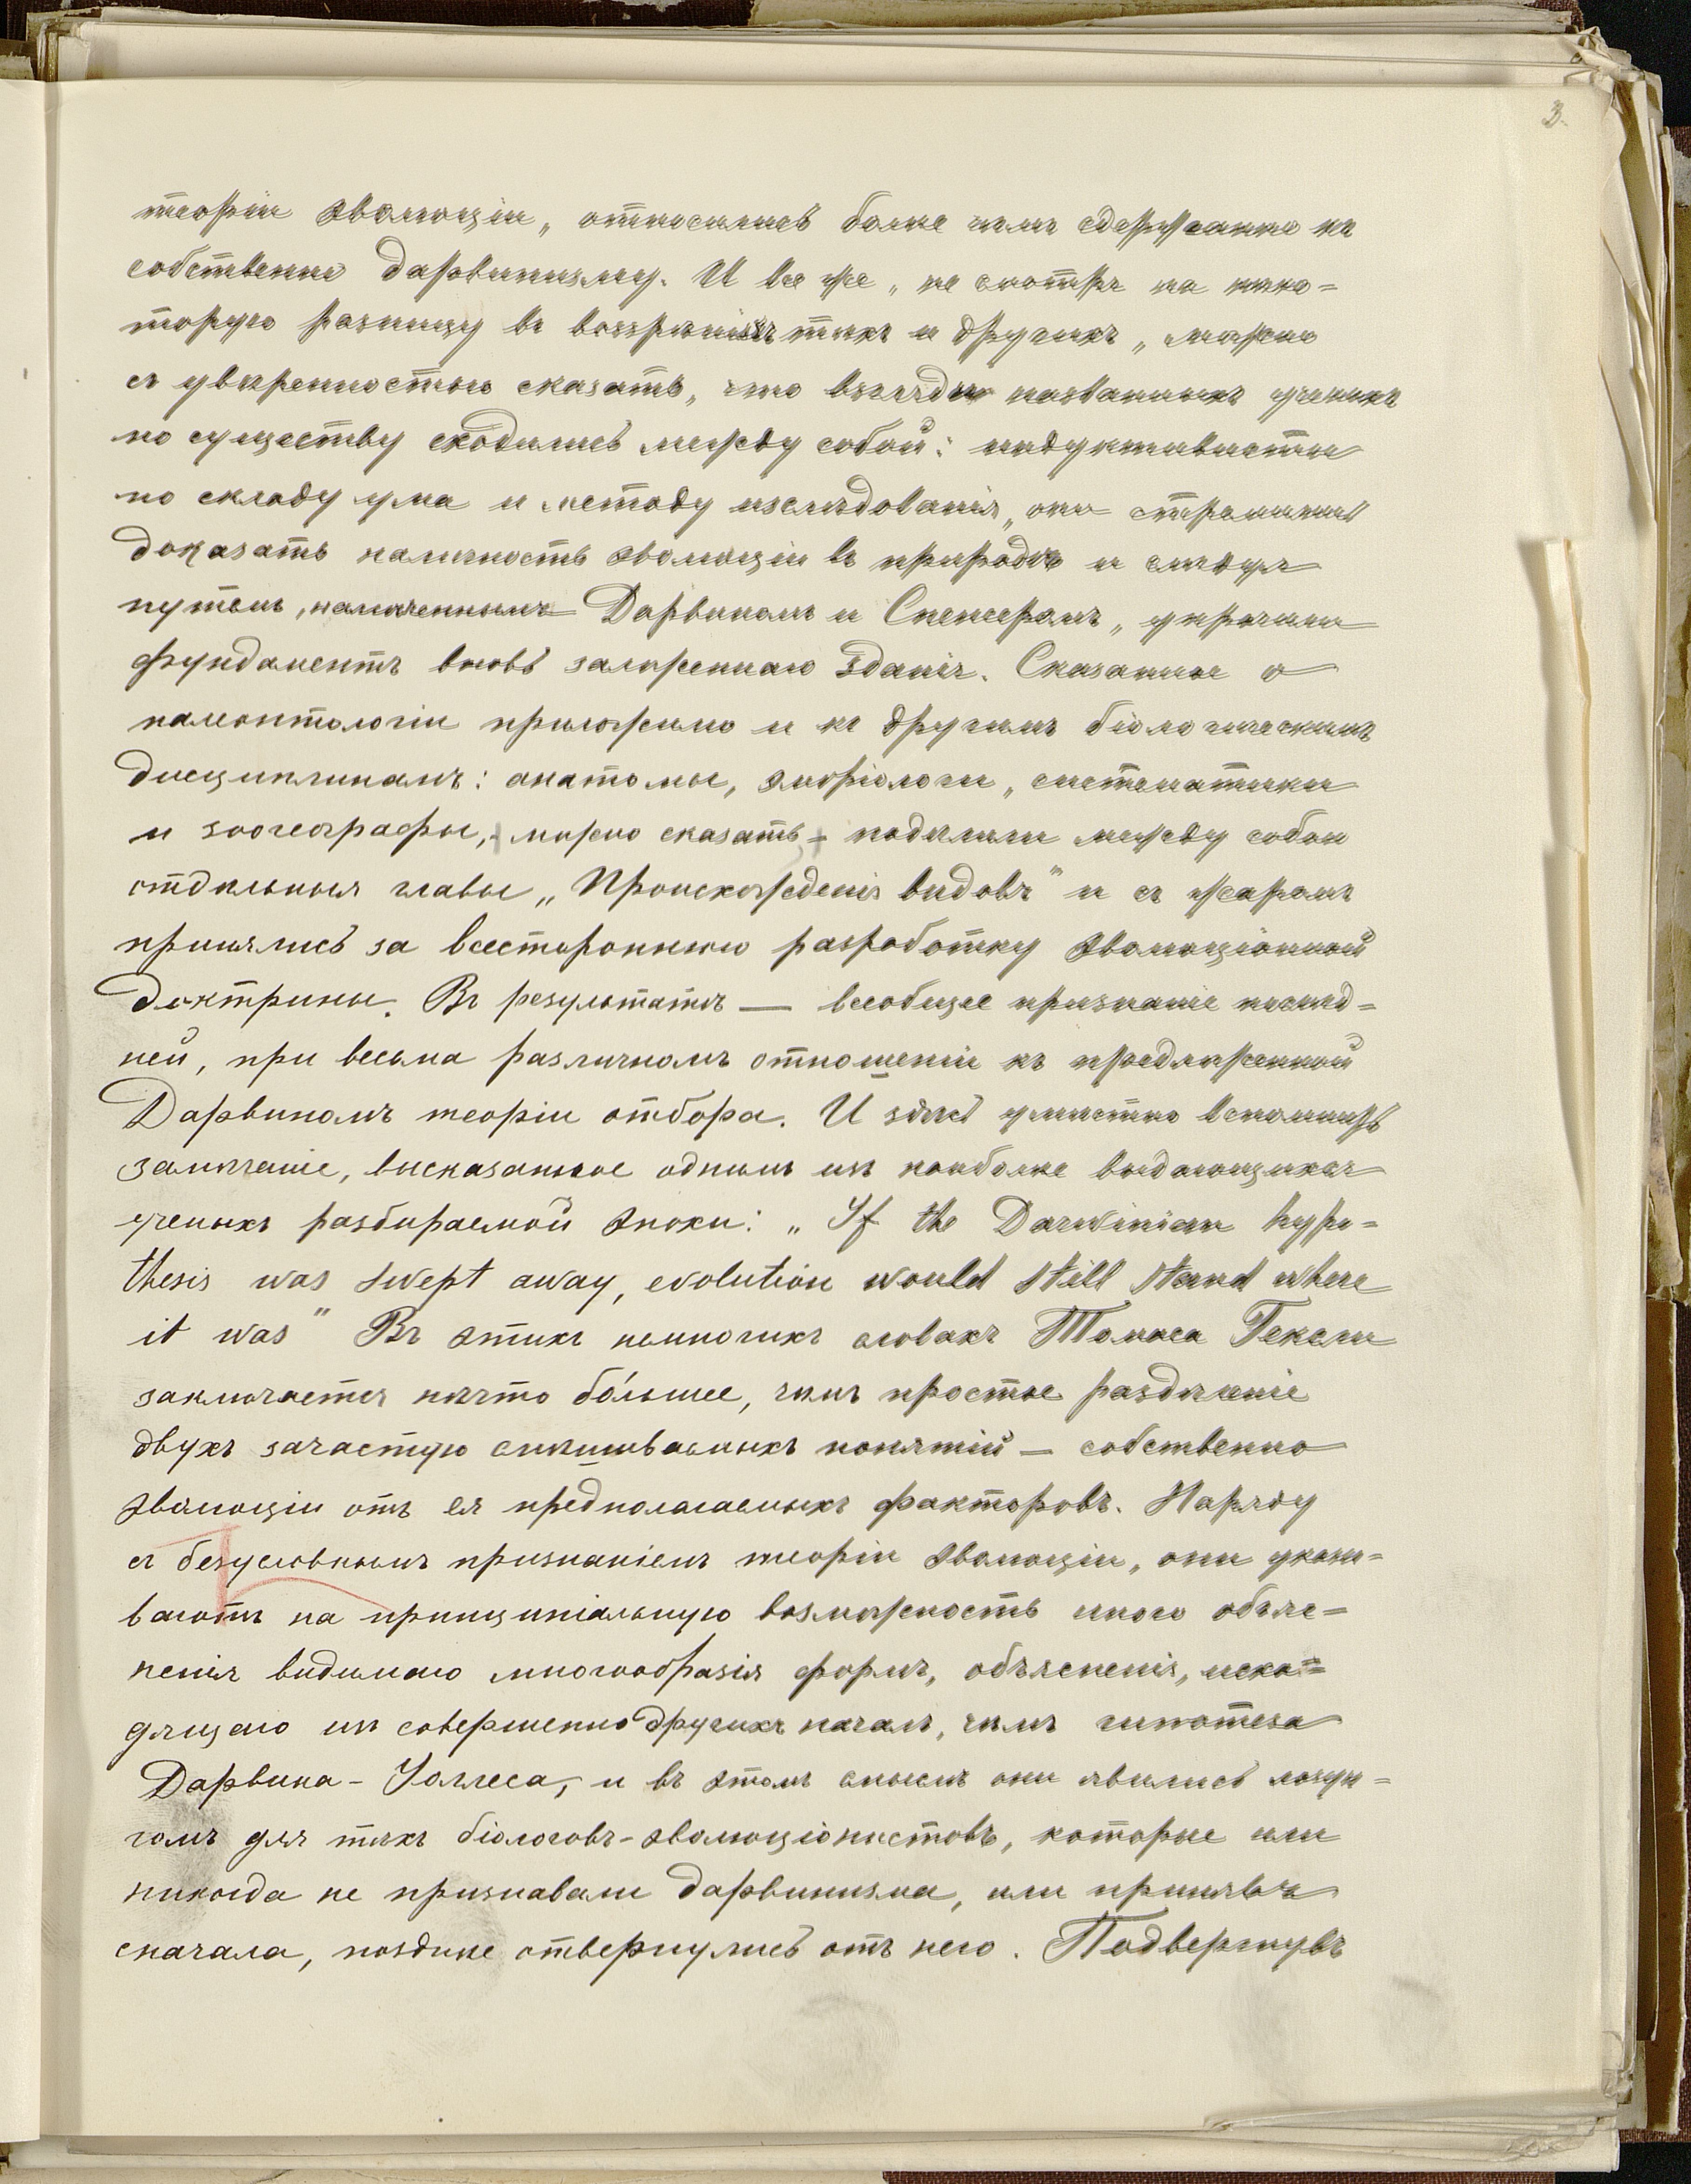 3.
теоріи эволюціи, относились болѣе чѣмъ сдержанно къ
собственно дарвинизму. И все же, не смотря на нѣко=
торую разницу въ воззрѣніяхъ тѣхъ и другихъ, можно
съ увѣренностью сказать, что взгляды названныхъ ученыхъ
по существу сходились между собой: индуктивисты
по складу ума и методу изслѣдованія, они стремились
доказать наличность эволюціи въ природѣ и слѣдуя
путемъ, намѣченнымъ Дарвиномъ и Спенсеромъ, упрочили
фундаментъ вновь заложеннаго зданія. Сказанное о
палеонтологіи приложимо и къ другимъ біологическимъ
дисциплинамъ: анатомы, эмбріологи, систематики
и зоогеографы, - можно сказать - подѣлили между собой
отдѣльныя главы „Происхожденія видовъ" и съ жаромъ
принялись за всестороннюю разработку эволюціонной
доктрины. Въ результатѣ — всеобщее признаніе послѣд=
ней, при весьма различномъ отношеніи къ предложенной
Дарвиномъ теоріи отбора. И здѣсь умѣстно вспомнить
замѣчаніе, высказанное однимъ изъ наиболѣе выдающихся
ученыхъ разбираемой эпохи: „If the Darwinian hypo=
thesis was swept away, evolution would still stand where
it was" Въ этихъ немногихъ словахъ Томаса Гексли
заключается нѣчто бо́льшее, чѣмъ простое раздѣленіе
двухъ зачастую смѣшиваемыхъ понятій — собственно
эволюціи отъ ея предполагаемыхъ факторовъ. Наряду
съ безусловнымъ признаніемъ теоріи эволюціи, они указы=
ваютъ на принципіальную возможность иного объяс=
ненія видимаго многообразія формъ, объясненія, исхо=
дящаго изъ совершенно другихъ началъ, чѣмъ гипотеза
Дарвина-Уоллеса, и въ этомъ смыслѣ они явились лозун=
гомъ для тѣхъ біологовъ-эволюціонистовъ, которые или
никогда не признавали дарвинизма, или принявъ
сначала, позднѣе отвернулись отъ него. Подвергнувъ